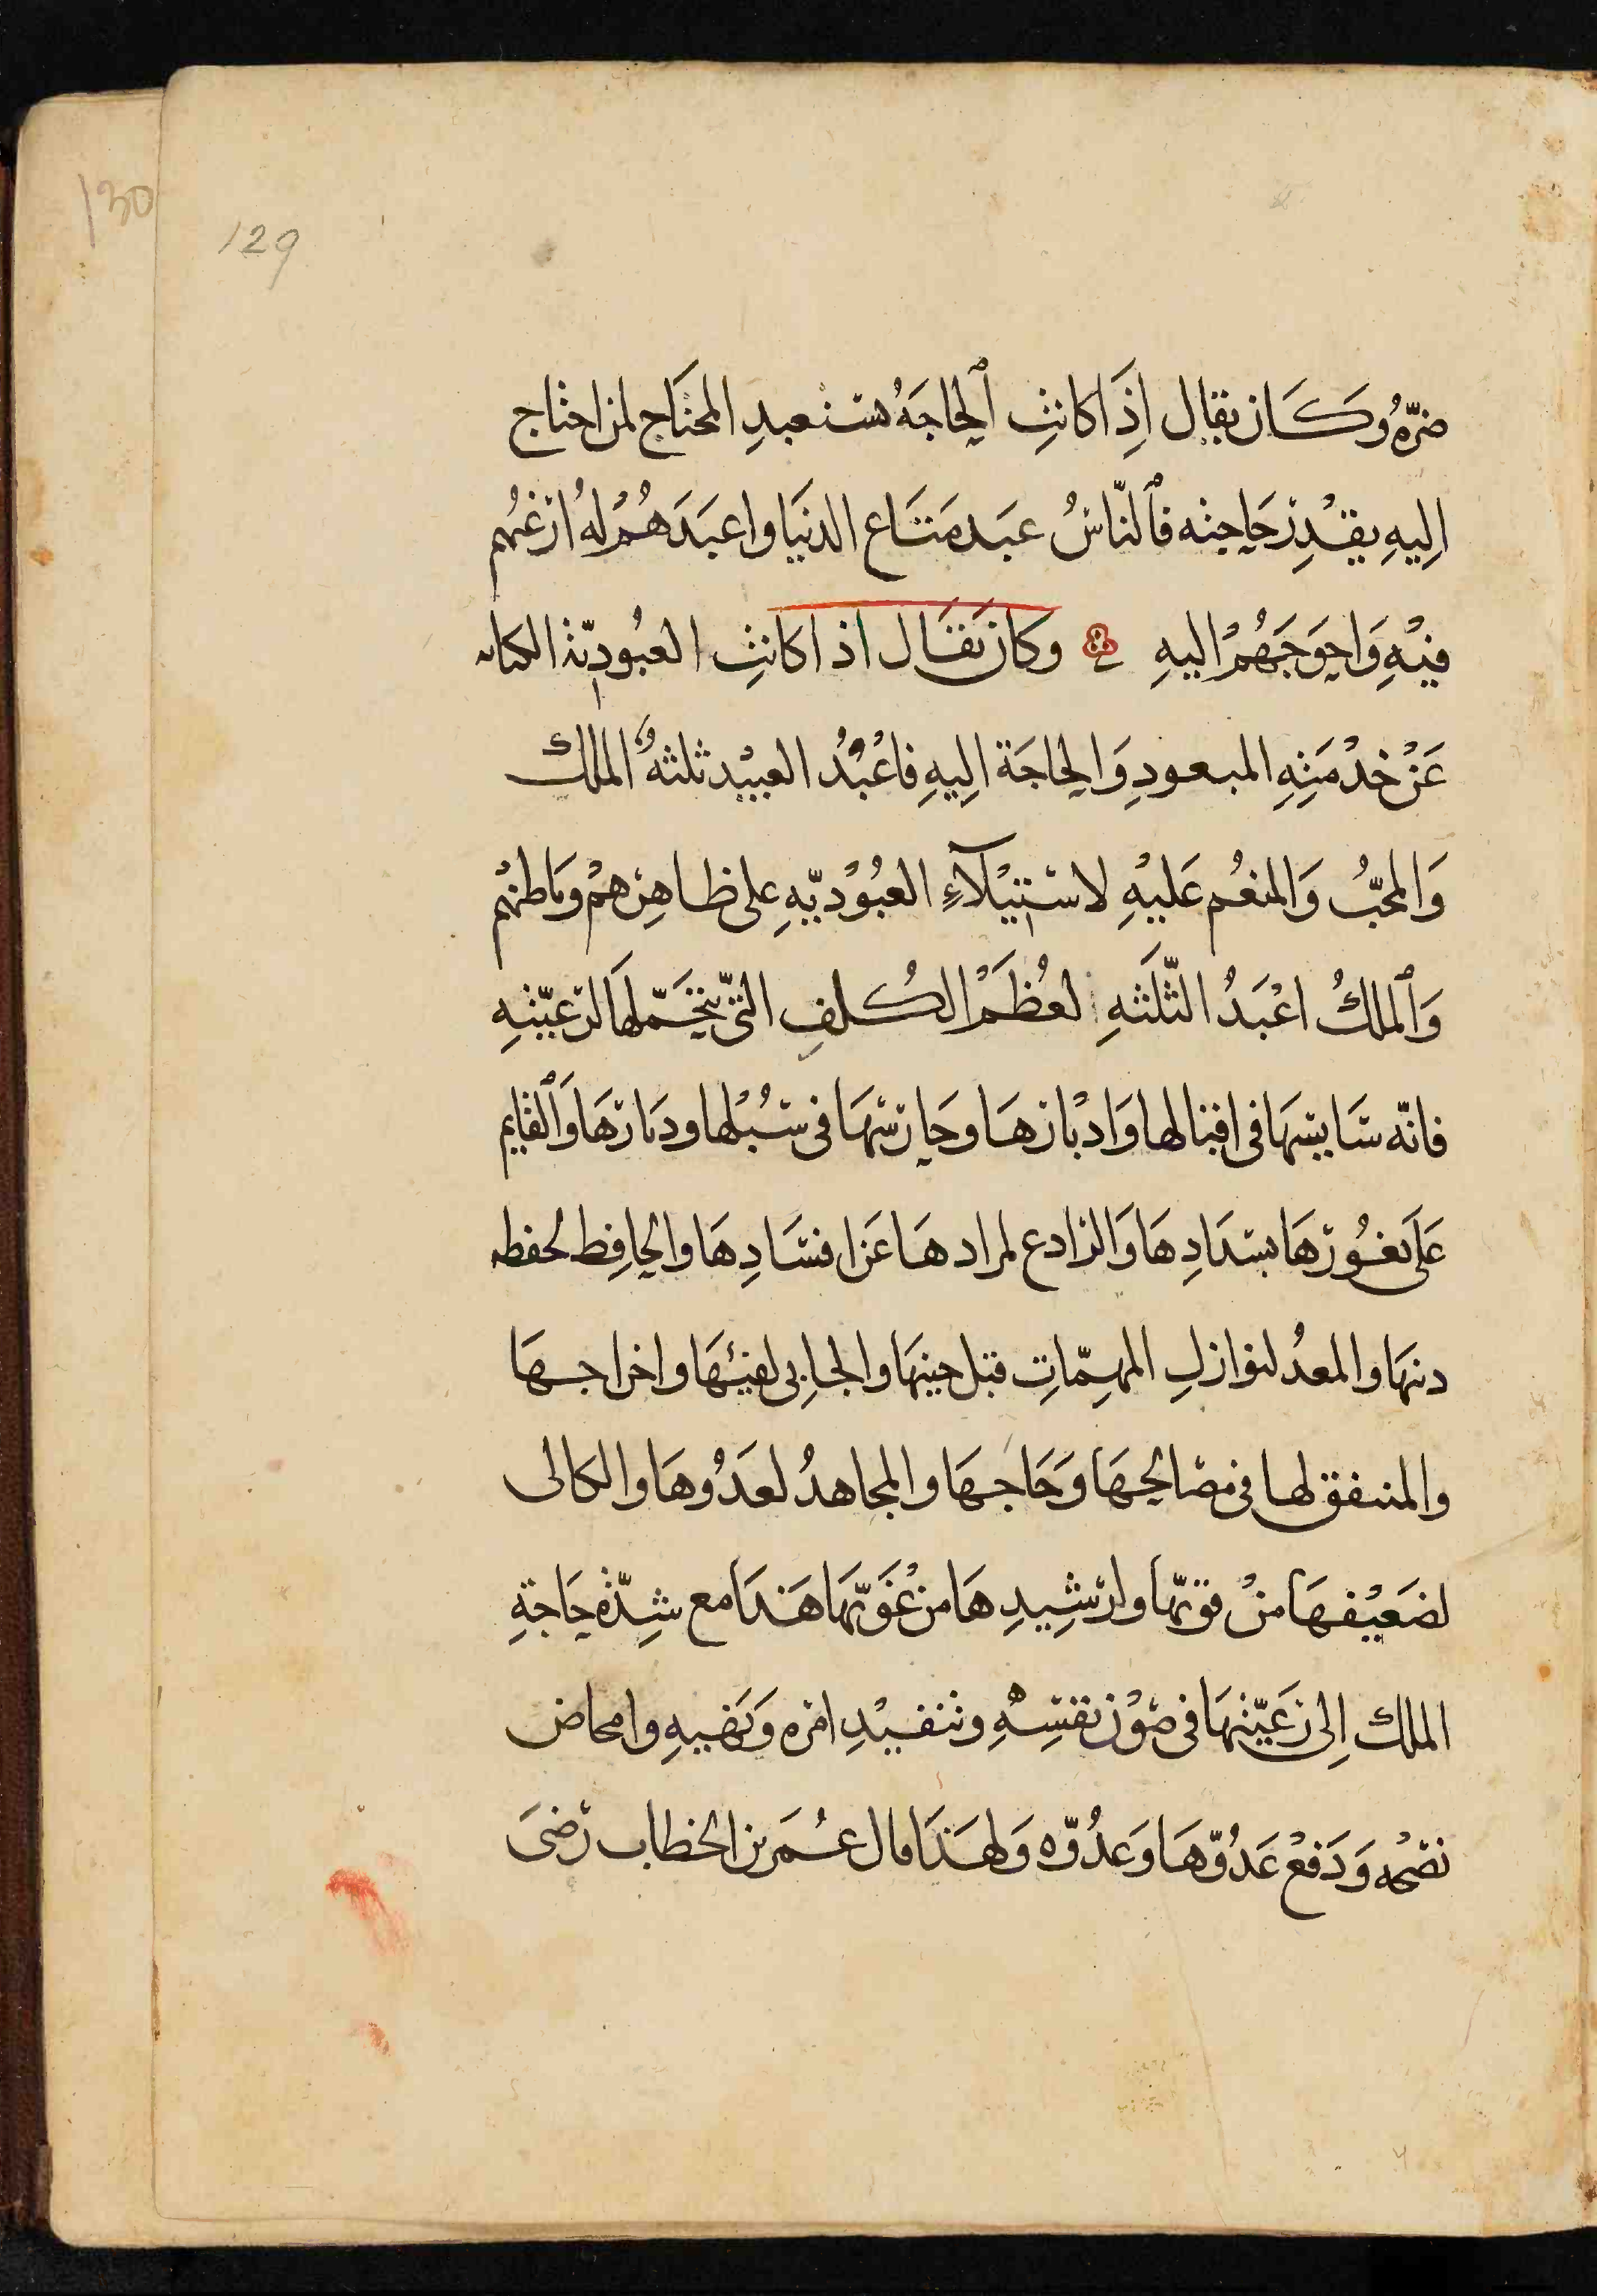 130
129
ضرّهُ وكَان يقال اِذَا كانتِ ٱلحاجَهُ تستعبدِ المحتَاج لمن احتاج
اِليهِ بقدْرِ حَاجته فٱلنّاسُ عبَد مَتَاع الدنيَا واعبَدَهُمْ لهُ ارغبُهم
فيْهِ وَاحوَجَهُمْ اليهِ وكان يَقَال اذا كانتِ العبُوديّة
عَنْ خدْمَتِهِ المبعودِ وَالحاجَة اِليهِ فاعْبُدُ العبيْد ثلثهُ الملك
وَالمحبُّ وَالمنعُم عَليْهِ لاستيْلآءِ العبُوْديّهِ على ظاهِرهمْ وباطنهُم
وَٱلملكُ اعْبَدُ الثّلَثهِ لعُظَمْ الكُلفِ التّى يتحَمّلهَا لرعيّتهِ
فانّه سَايسهَا فى اقبَالها وَادْبارهَا وحَارسهَا فى سُبُلْها ودَيارهَا وَٱلقايم
عَلَى ثغُورْهَا بسَدَادِهَا وَالرادع لمرادهَا عَن افسَادِهَا والحافِظ لحفظه
دينهَا والمعدُ لنوازلِ المهِمّاتِ قبْل حينهَا والجابى لفيْئهَا واخراجهَا
والمنفق لها فى مصَالحهَا وَحَاجهَا والمجاهدُ لعَدُوهَا والكالى
لضَعيْفهَا منْ قوّتهَا ولرْشِيدِهَا من غْوَتّهَا هَذَا مع شِدّة حَاجةِ
الملك اِلى رَعيّتهَا فى صَوْن نفسِهِ وتنفيْذِ امْره وَنهْيهِ وامحاض
نصْحُه وَدَفعْ عَدُوّهَا وَعدُوّه وَلهَذَا قال عُمَر بن الخطاب رضىَ